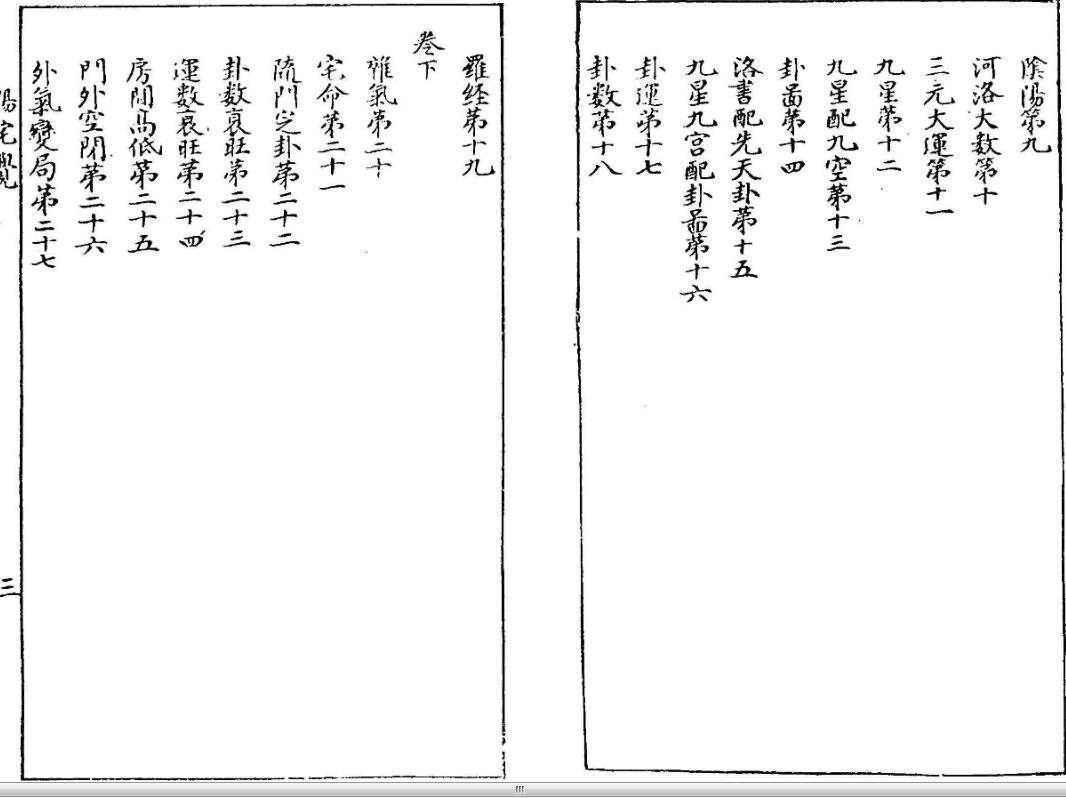 陰陽第九
河洛大数第十
三元大運第十一
九星第十二
九星配九空第十三
卦啚第十四
洛書配先天卦第十五
九星九宫配卦啚第十六
卦運第十七
卦数第十八
羅经第十九
卷下
雜氣第二十
宅命第二十一
疏門定卦第二十二
卦数衰旺第二十三
運数衰旺第二十四
房間高低第二十五
門外空閒第二十六
外氣變局第二十七
陽宅覺
三